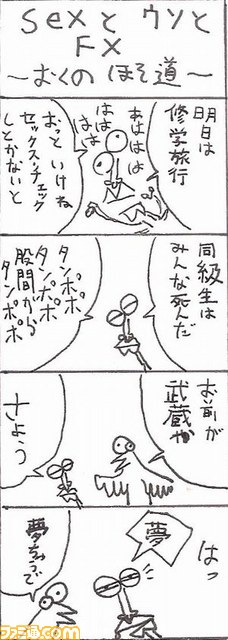 sexと ウソと
FX
～おくの ほそ道～
明日は
修学旅行
あははは
ははは
おっと いけね
セックス・チェック
しとかないと
同級生は
みんな死んだ
タンポポ
タンポポ
股間から
タンポポ
お前が
武蔵か
さよう
はっ
夢
夢みつで
ファミ通.com